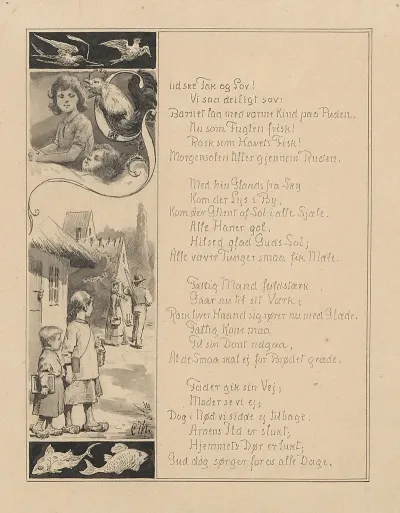 ud ske Tak og Lov!
Vi saa deiligt sov;
Barnet laa med varme Kind paa Puden.
Nu som Fuglen frisk!
Rask som Havets Fisk!
Morgensolen titter gjennem Ruden.
Med hin Glands fra Sky
Kom der Lys i By,
Kom der Glient af Sol i alle Sjæle.
Alle Haner gol,
Hilseg glad Guds Sol;
Alle vaare Tunger smaa fik Mæle.
Fattig Mand
Gaar nu til sit Værk;
Rask hver Haand sig rører nu med Glæde.
Fattig Kone maa
Til sin Dont udgaa,
At de Smaa skal ej for Brødet græde.
Fader gik sin Vej;
Moder se vi ej;
Dog i Nød vi sidde ej tilbage.
Arnens Ild er slukt;
Hjemmets Dør er lukt;
Gud dog sørger for os alle Dage.